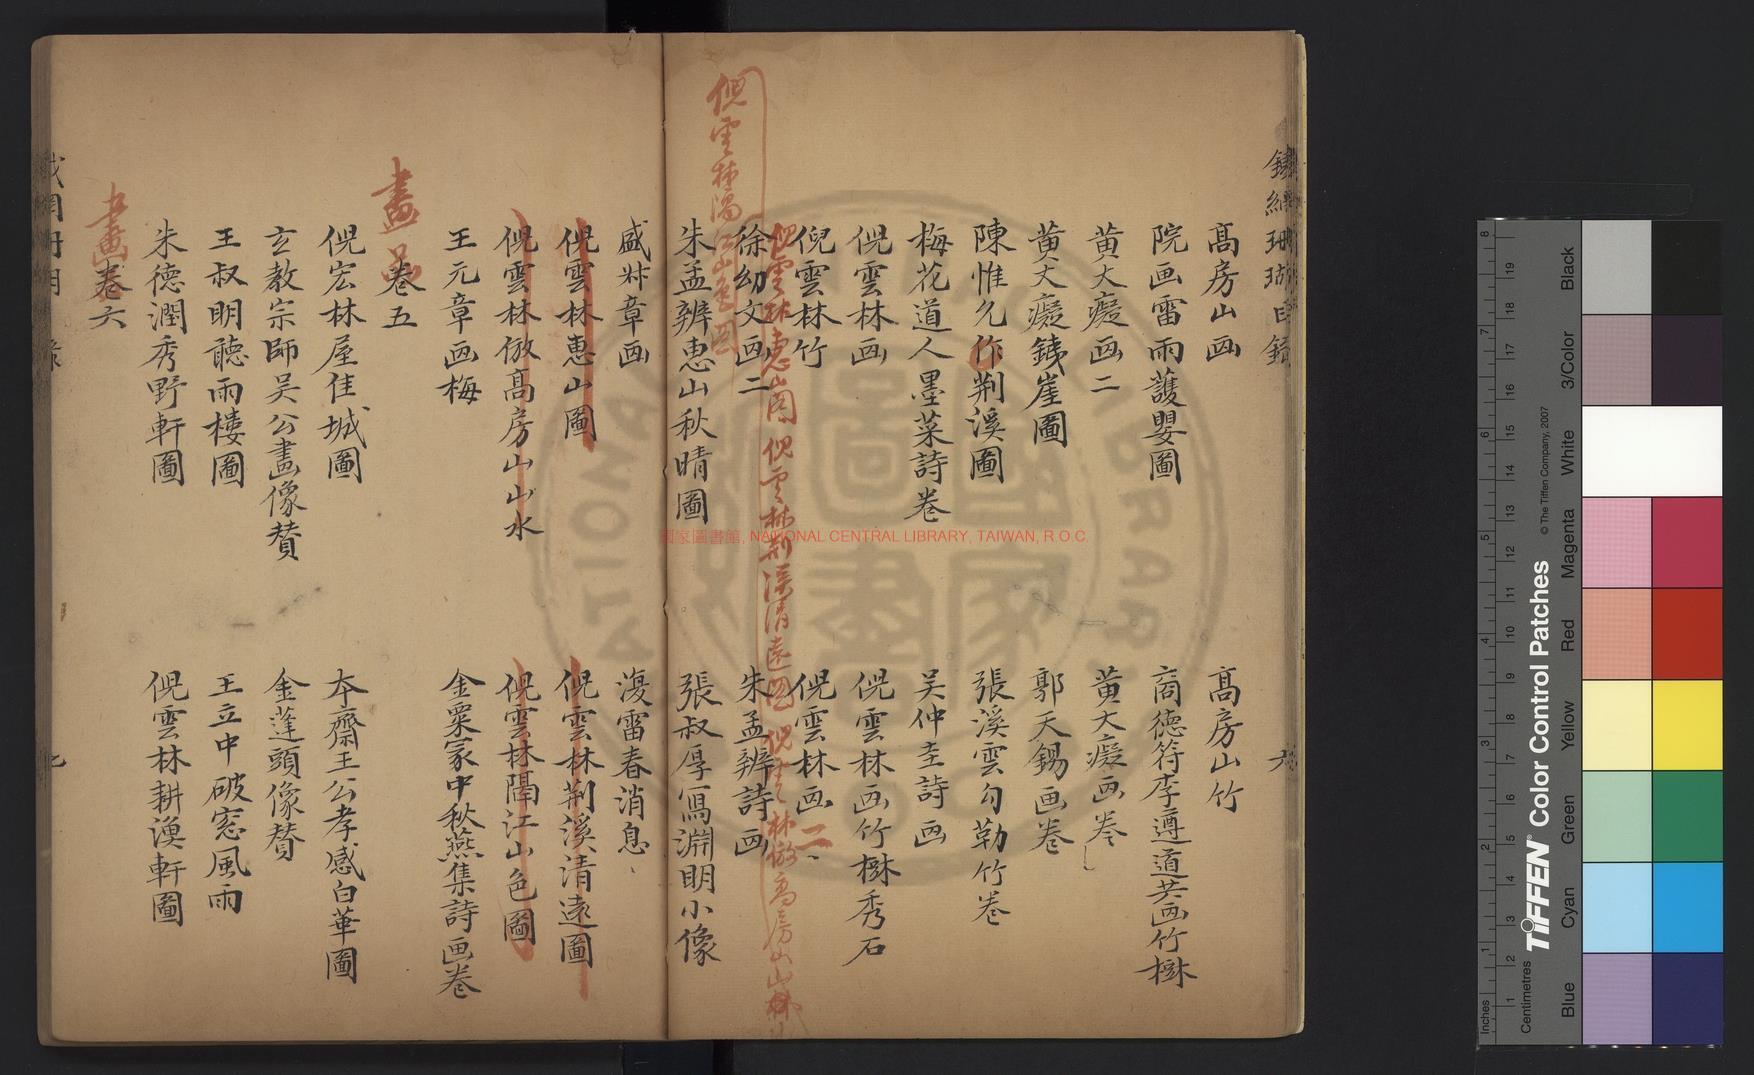 高房山画
高房山竹
院画雷雨護嬰圖
商德符李遵道共画竹樹
黄大癡画二
黄大癡画卷
黄大癡銕崖圖
郭天錫画卷
陳惟允作荆溪圖
張溪雲勾勒竹卷
梅花道人墨菜詩卷
吴仲圭詩画
倪雲林画
倪雲林画竹樹秀石
倪雲林竹
倪雲林画二
倪雲林惠山圖 倪雲林荆溪清遠圖 倪雲林倣高房山山
徐幼文画二
朱孟辨詩画
倪雲林隔江山色圖
朱孟辨惠山秋晴圖
張叔厚寫淵明小像
盛叔章画
復雷春消息
倪雲林惠山圖
倪雲林荆溪清遠圖
倪雲林倣高房山山水
倪雲林隔江山色圖
王元章画梅
金粟冢中秋燕集詩画卷
畫品
卷五
倪宏林屋佳城圖
本齋王公孝感白華圖
玄教宗師吴公畫像賛
金蓬頭像賛
王叔明聽雨樓圖
王立中破窓風雨
朱德潤秀野軒圖
倪雲林耕漁軒圖
畫
卷六
國家圖書館, NATIONAL CENTRAL LIBRARY, TAIWAN, R.O.C.
Inches
Centimetres
TIFFEN® Color Control Patches
© The Tiffen Company, 2007
Blue
Cyan
Green
Yellow
Red
Magenta
White
3/Color
Black